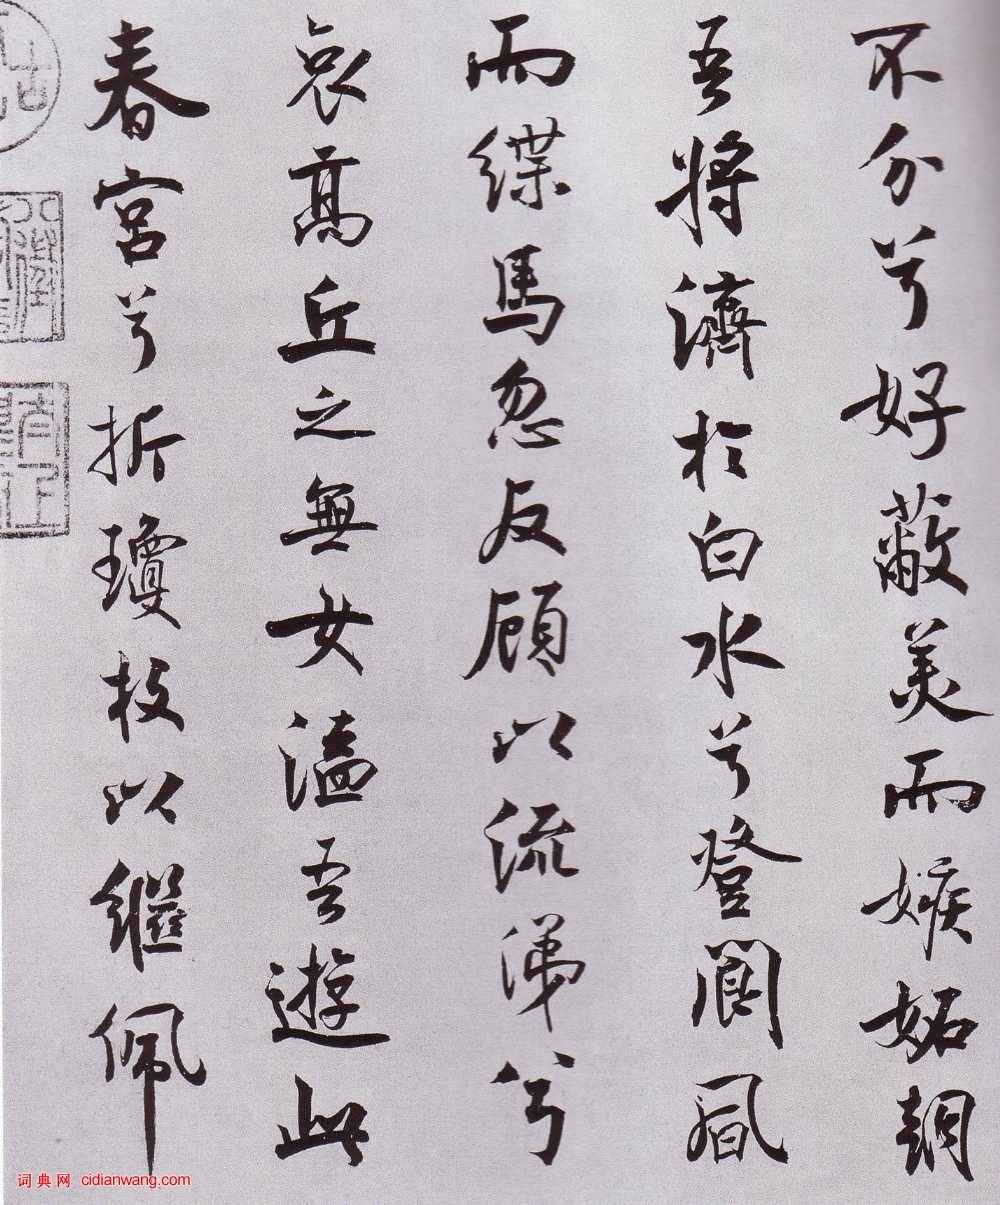 不分兮好蔽美而嫉妬朝
吾將濟於白水兮登閬風
而緤馬忽反顧以流涕兮
哀高丘之無女溘吾遊此
春宮兮折瓊枝以繼佩
词典网 cidianwang.com